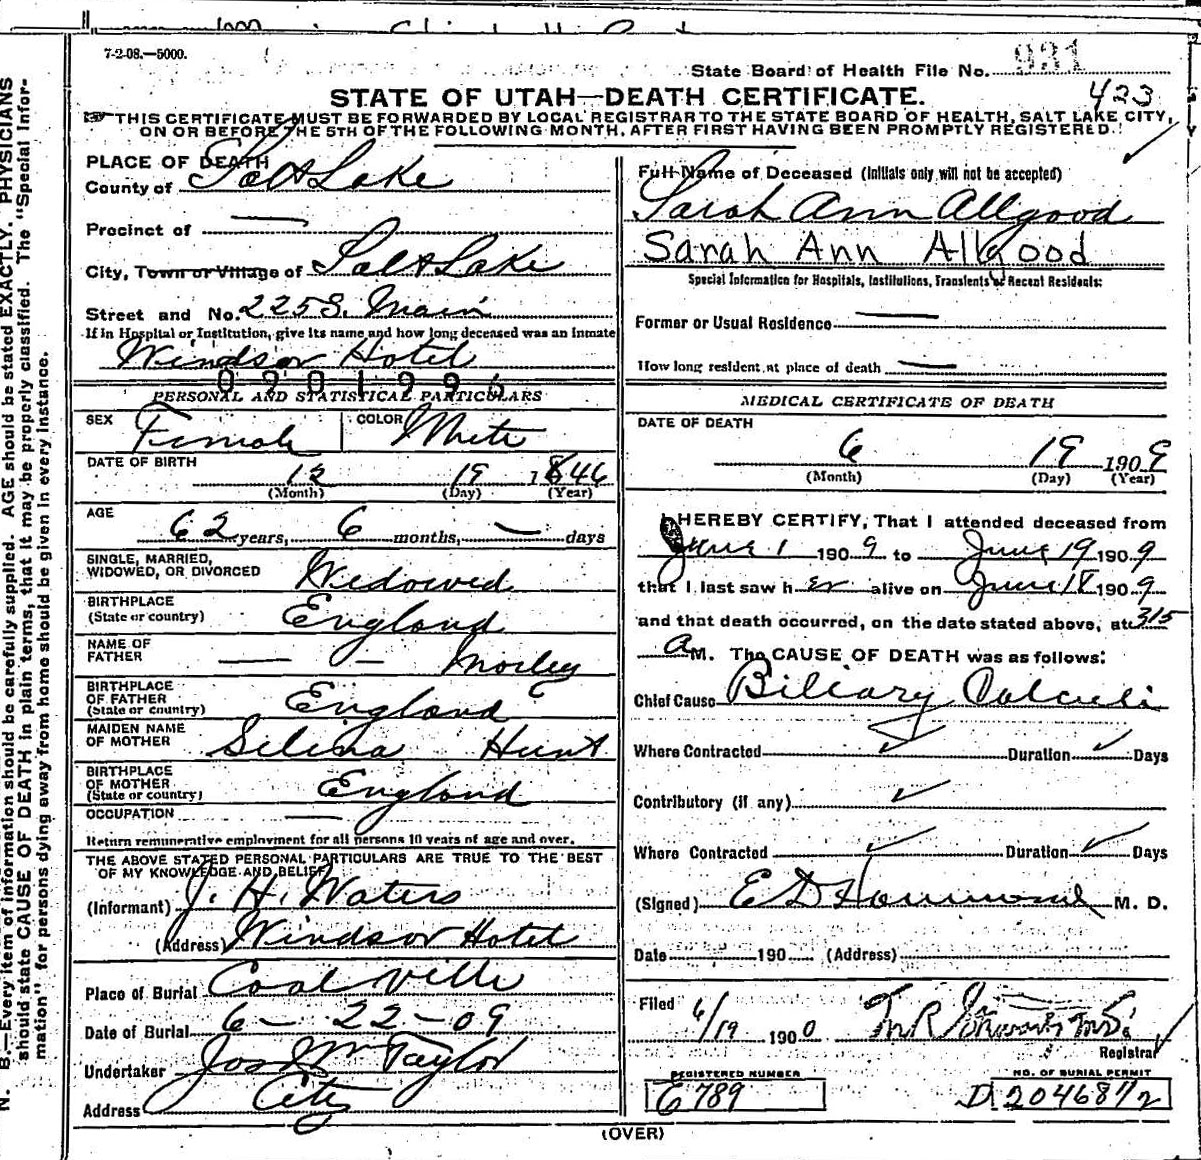 7-2-08.—5000.
State Board of Health File No. 931
STATE OF UTAH—DEATH CERTIFICATE.
423
THIS CERTIFICATE MUST BE FORWARDED BY LOCAL REGISTRAR TO THE STATE BOARD OF HEALTH, SALT LAKE CITY,
ON OR BEFORE THE 5TH OF THE FOLLOWING MONTH, AFTER FIRST HAVING BEEN PROMPTLY REGISTERED.
PLACE OF DEATH
County of Salt Lake
Precinct of —
City, Town or Village of Salt Lake
Street and No. 225 S. Main
If in Hospital or Institution, give its name and how long deceased was an inmate
Windsor Hotel
0201996
PERSONAL AND STATISTICAL PARTICULARS
SEX Female COLOR White
DATE OF BIRTH 12 19 1846
(Month) (Day) (Year)
AGE
62 years, 6 months, — days
SINGLE, MARRIED,
WIDOWED, OR DIVORCED Widowed
BIRTHPLACE
(State or country) England
NAME OF
FATHER — — Morley
BIRTHPLACE
OF FATHER
(State or country) England
MAIDEN NAME
OF MOTHER Selina Hunt
BIRTHPLACE
OF MOTHER
(State or country) England
OCCUPATION —
Return remunerative employment for all persons 10 years of age and over.
THE ABOVE STATED PERSONAL PARTICULARS ARE TRUE TO THE BEST
OF MY KNOWLEDGE AND BELIEF
(Informant) J. H. Waters
(Address) Windsor Hotel
Place of Burial Coalville
Date of Burial 6 - 22 - 09
Undertaker Jos Wm Taylor
Address City
Full Name of Deceased (Initials only will not be accepted)
Sarah Ann Allgood
Sarah Ann Allgood
Special Information for Hospitals, Institutions, Transients or Recent Residents:
Former or Usual Residence —
How long resident at place of death —
MEDICAL CERTIFICATE OF DEATH
DATE OF DEATH
6 19 1909
(Month) (Day) (Year)
I HEREBY CERTIFY, That I attended deceased from
June 1 1909 to June 19 1909
that I last saw her alive on June 18 1909
and that death occurred, on the date stated above, at 315
A M. The CAUSE OF DEATH was as follows:
Chief Cause Biliary Calculi
Where Contracted Duration Days
Contributory (if any)
Where Contracted Duration Days
(Signed) E D M. D.
Date 190 (Address)
Filed 6/19 1900 M.D.
Registrar
REGISTERED NUMBER
E 789
NO. OF BURIAL PERMIT
D 20468 1/2
(OVER)
N. B.—Every item of information should be carefully supplied. AGE should be stated EXACTLY. PHYSICIANS
should state CAUSE OF DEATH in plain terms, that it may be properly classified. The "Special Infor-
mation" for persons dying away from home should be given in every instance.